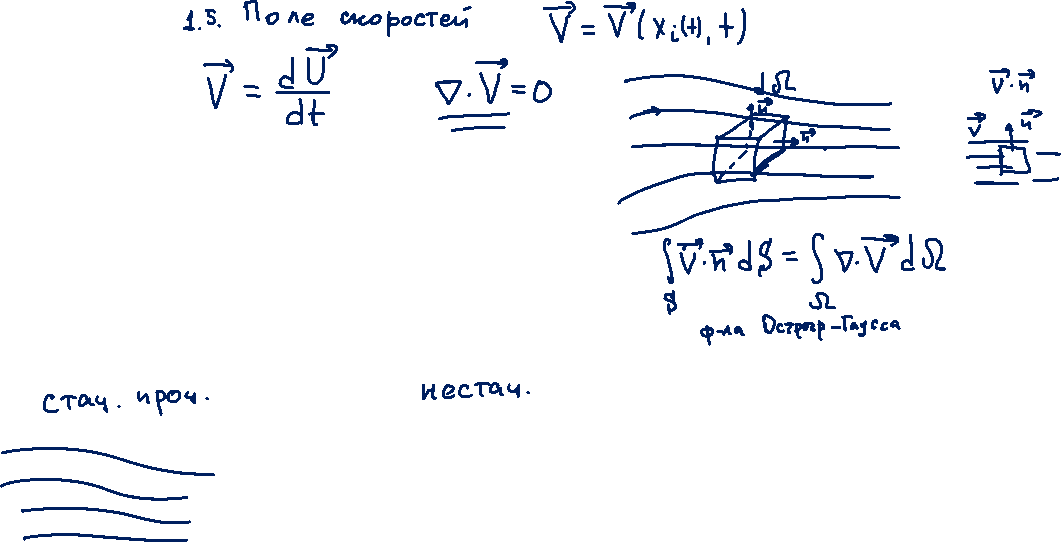 1.5. Поле скоростей V⃗ = V⃗(xᵢ(t), t)
V⃗ = dU⃗/dt ∇·V⃗ = 0
dΩ
n⃗
n⃗
V⃗·n⃗
V⃗ n⃗
∫_S V⃗·n⃗ dS = ∫_Ω ∇·V⃗ dΩ
ф-ла Острогр-Гаусса
стац. проц. нестац.